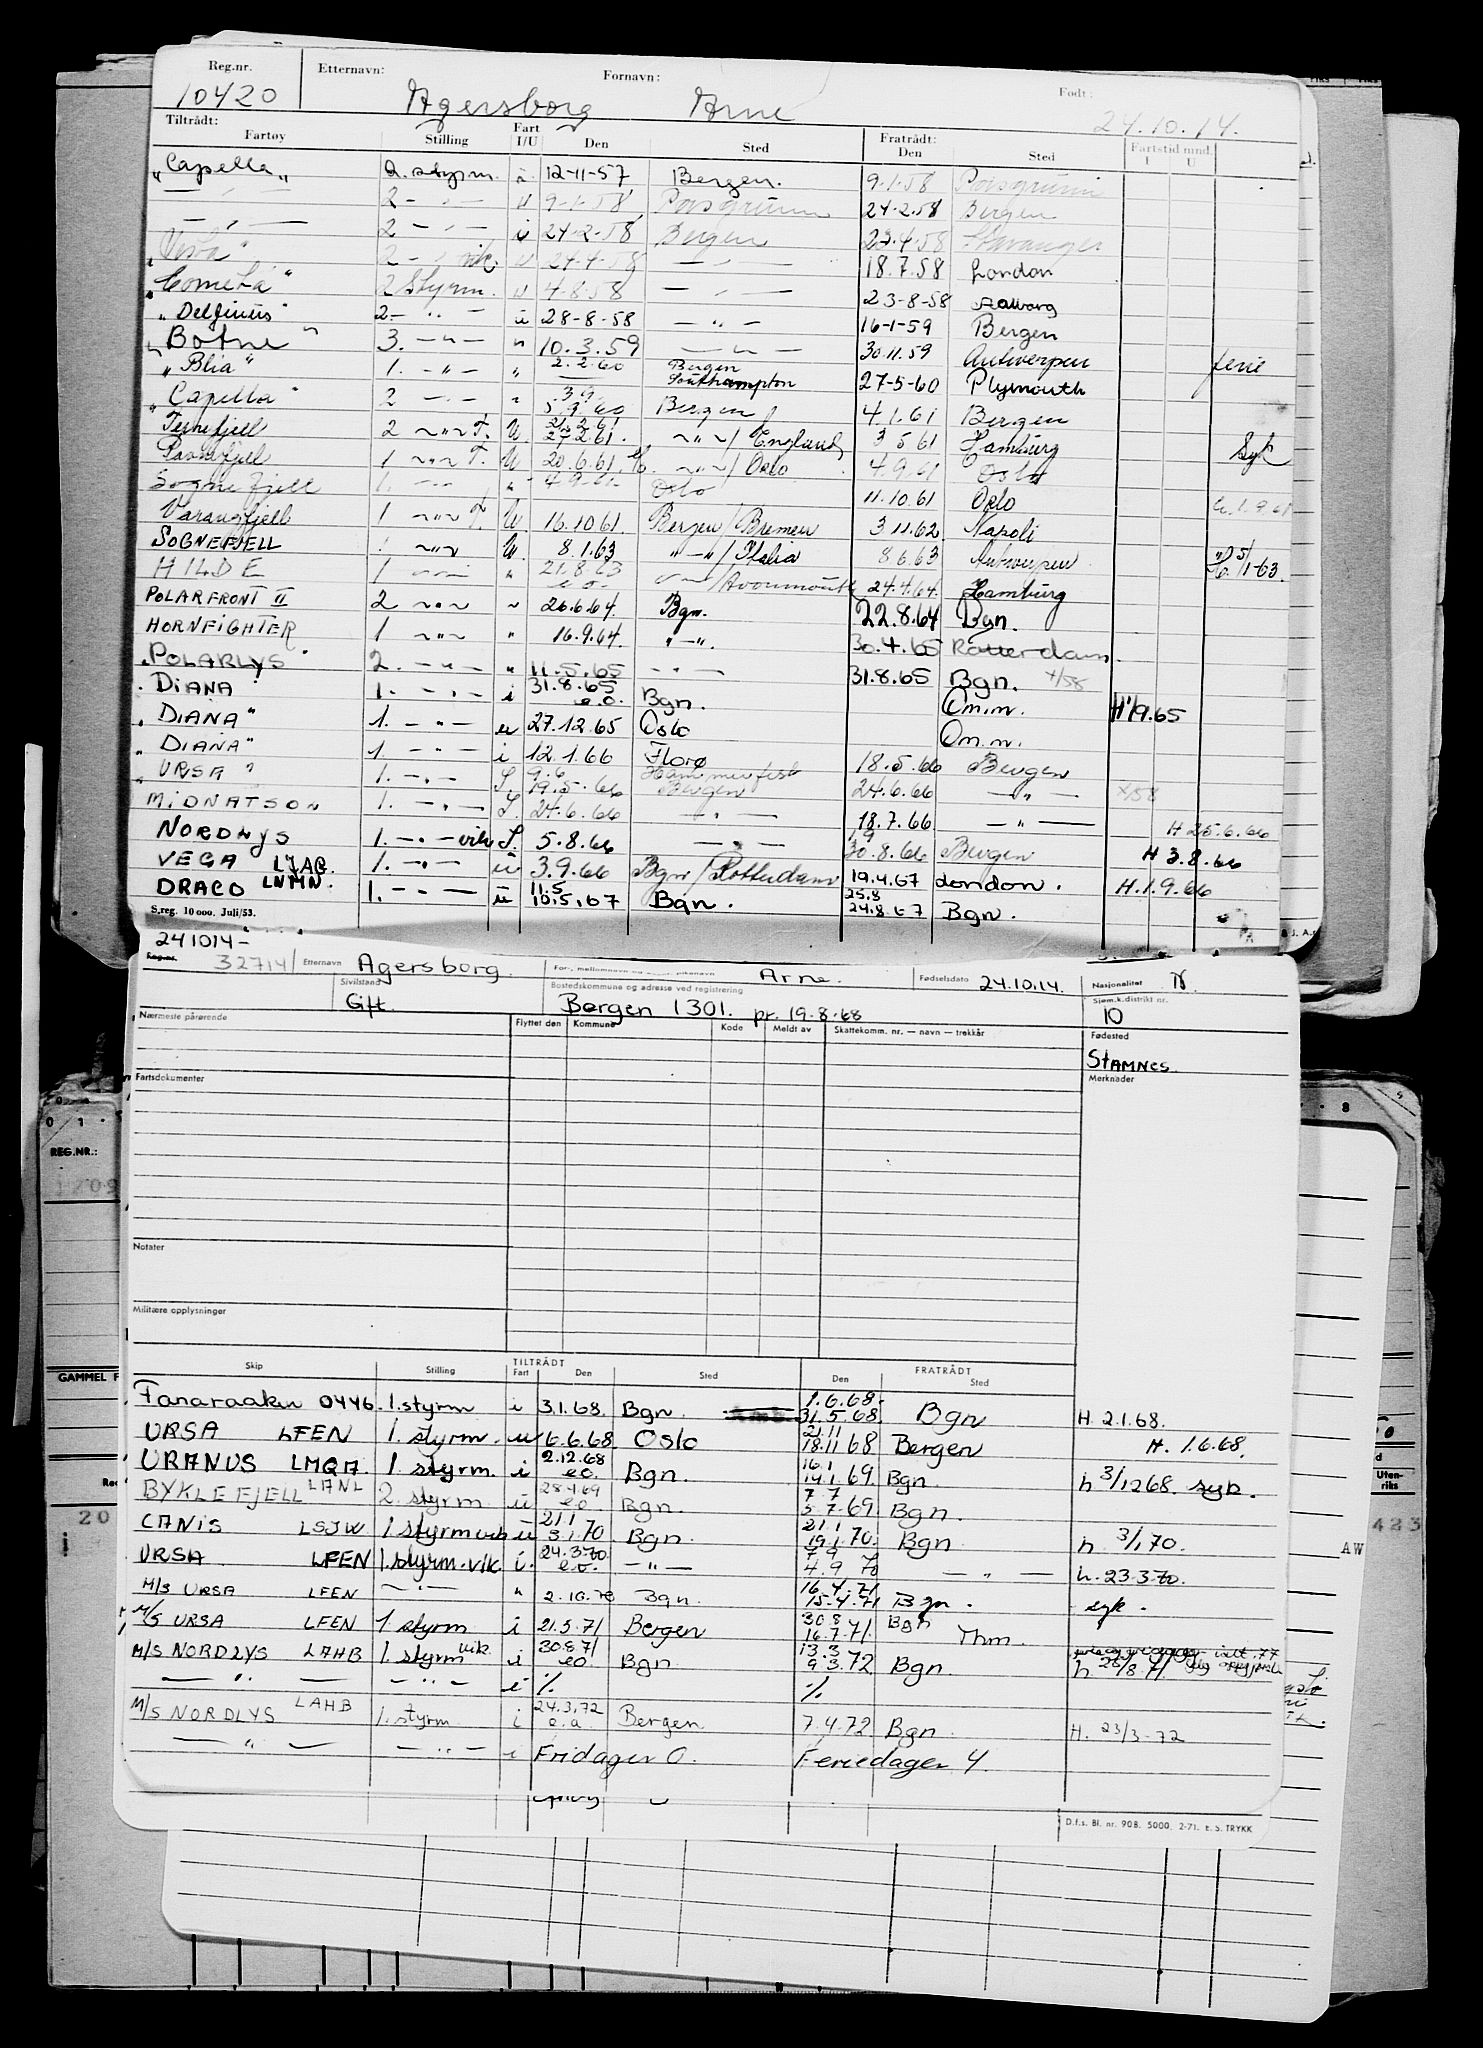 Reg.nr. Etternavn: Fornavn: Født:
10420 Agersborg Arne 24.10.14.
Tiltrådt: Fratrådt: Fartstid mnd.
Fartøy Stilling Fart I/U Den Sted Den Sted I U
"Capella" 2. styrm. 12-11-57 Bergen. 9.1.58 Porsgrunn
— " — 2 — " — u 9-1-58 Porsgrunn 24.2.58 Bergen
— " — 2 — " — i 24-2-58 Bergen 23.4.58 Stavanger
2 — " — vik. u 24-4-58 — " — 18.7.58 London
"Cometa" 2 Styrm. u 4-8-58 — " — 23-8-58 Aalborg
"Delfinus 2 — " — u 28-8-58 — " — 16-1-59 Bergen
"Botne" 3. — " — " 10.3.59 — " — 30.11.59 Antwerpen ferie
"Blia" 1. — " — " 2.2.60 Bergen Southampton 27-5-60 Plymouth
"Capella" 2 — " — " 3.9 5.9.60 Bergen 4.1.61 Bergen
Ternefjell 2 — " — T. U. 21.2.61 27.2.61. — " — / England 3 5 61 Hamburg Syk
Ravnefjell 1 — " — T. U 20.6.61. — " — / Oslo 4.9.61 Oslo
Sognefjell 1. — " — " 4.9.61 Oslo 11.10 61 Oslo h. 1.9.61
Varangfjell 1 — " — T. U 16.10 61. Bergen / Bremen 3 11.62. Napoli
SOGNEFJELL 1 — " — U. 8.1.63 — " — / Italia 8 6 63 Antwerpen 5/1-63.
HILDE 1 — " — " 21.8.63 e.o. — " — / Avonmouth 24.4.64. Hamburg
POLARFRONT II 2 — " — " 26.6.64. Bgn. 22.8.64 Bgn.
HORNFIGHTER 1 — " — " 16.9.64. — " — 30.4.65 Rotterdam.
"POLARLYS" 2. — " — " 11.5.65 — " — 31.8.65 Bgn. x/58
"DIANA" 1. — " — i 31.8.65 e.o. Bgn. Om.m. H 1/9.65
"DIANA" 1. — " — u 27.12.65 Oslo Om.m.
"DIANA" 1 — " — i 12.1.66 Florø 18.5.66 Bergen
"URSA" 1. — " — S. 9.6 19.5.66 Hammerfest Bergen 24.6.66 — " — x/58
MIDNATSOL 1 — " — S. 24.6.66 — " — 18.7.66 — " — H 25.6.66
NORDLYS 1. — " — vik S. 5.8.66 — " — 1/9 30.8.66 Bergen H 3.8.66
VEGA LJAB. 1. — " — u 3.9.66 Bgn / Rotterdam 19.4.67 London. H.1.9.66
DRACO LNMN. 1. — " — u 11.5 10.5.67 Bgn. 25.8 24.8.67 Bgn.
S.reg. 10 000. Juli/53.
241014-
Reg.nr. 32714 Etternavn Agersborg. Arne. Fødselsdato 24.10.14. Nasjonalitet N.
Sivilstand Gift. Bostedskommune og adresse ved registrering Bergen 1301. pr. 19.8.68 Sjøm.k.distrikt nr. 10
Nærmeste pårørende Flyttet den Kommune Kode Meldt av Skattekomm. nr. — navn — trekkår Fødested
STAMNES
Fartsdokumenter Merknader
Notater
Militære opplysninger
Skip Stilling TILTRÅDT Fart Den Sted FRATRÅDT Den Sted
Fanaraaken 0446. 1.styrm i 3.1.68. Bgn. 1.6.68. 31.5.68 Bgn H. 2.1.68.
URSA LFEN 1. styrm. u 6.6.68 Oslo 21.11 18.11 68 Bergen H. 1.6.68.
URANUS LMQA. 1. styrm. i 2.12.68 e.o. Bgn. 16.1 14.1 69. Bgn. h 3/12 68. syk.
BYKLEFJELL LANL 2. styrm u 28.4.69 e.o. Bgn. 7.7 5.7.69 Bgn.
CANIS LSJW 1 styrm vik u 21.1 3.1.70 Bgn. 21.1 19.1.70. Bgn h. 3/1 70.
URSA LFEN 1. styrm. vik. i. 24.3.70. e.o. — " — 7.9 4.9 70 — " — h. 23.3.70.
M/S URSA LFEN — " — " 2.10.70 Bgn. 16.4.71 15.4.71 Bgn. syk.
M/S URSA LFEN 1 styrm i 21.5.71 Bergen 30.8 16.7.71. Bgn Thm.
M/S NORDLYS LAHB 1. styrm vik. i 30.8 71 e.o. Bgn 13.3 9.3.72 Bgn h 28/8 71.
— " — — " — i % %
M/S NORDLYS LAHB 1. styrm i 24.3.72 e.a Bergen 7.4.72 Bgn. H. 23/3-72
— " — — " — i Fridager 0. Feriedager 4.
D.f.s. Bl. nr. 908. 5000. 2-71. E. S. TRYKK
REG.NR.:
GAMMEL F
20
Uten-riks
423
AW